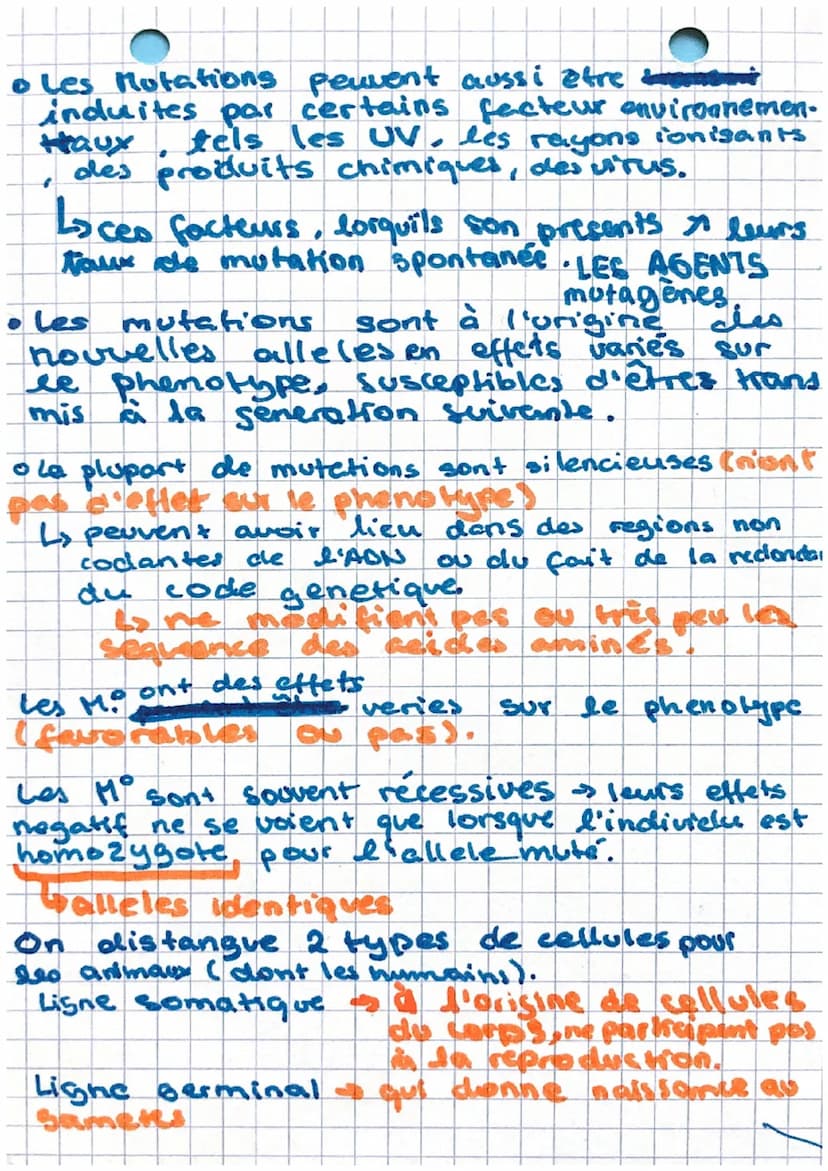 • Les Mutations peuvent aussi être
induites par certains facteur environnemen-
ttaux, tels les UV, les rayons ionisants
, des produits chimiques, des virus.
↳ ces facteurs, lorquils son presents ↗ leurs
taux de mutation spontanée. LES AGENTS
mutagènes.
• Les mutations sont à l'origine des
nouvelles alleles en effets variés sur
le phenotype, susceptibles d'êtres trans
mis à la generation suivante.
• La plupart de mutations sont silencieuses (n'ont
pas d'effet sur le phenotype)
↳ peuvent avoir lieu dans des regions non
codantes de l'ADN ou du fait de la redondan
du code genetique.
↳ ne modifient pas ou très peu les
sequence des acides aminés.
Les M° ont des effets
veries sur le phenotype
(favorables ou pas).
Les M° sont souvent récessives → leurs effets
negatif ne se voient que lorsque l'individu est
homozygote, pour l'allele muté.
↳ alleles identiques
On distangue 2 types de cellules pour
les animaux (dont les humains).
Ligne somatique → à l'origine de cellules
du corps, ne participent pas
à la reproduction.
Ligne germinal → qui donne naissance au
gametes